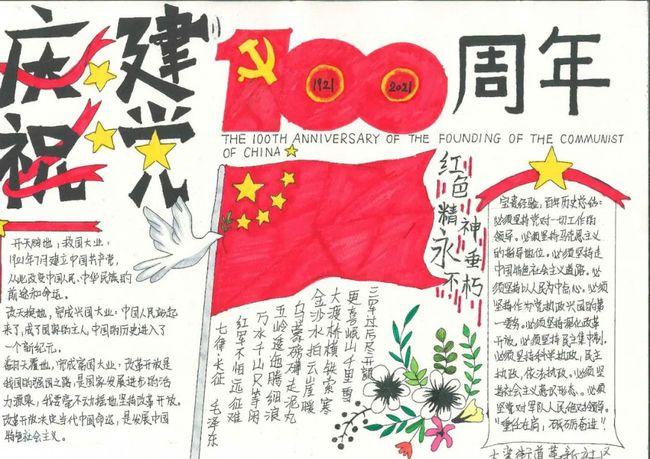 庆祝
建党
100
周年
1921
2021
THE 100TH ANNIVERSARY OF THE FOUNDING OF THE COMMUNIST
OF CHINA
红色精神
永垂不朽
开天辟地，救国大业：
1921年7月建立中国共产党，
从此改变中国人民、中华民族的
前途和命运。
改天换地，完成兴国大业：中国人民站起
来了，成了国家的主人，中国的历史进入了
一个新纪元。
翻天覆地，完成富国大业：改革开放是
我国的强国之路，是国家发展进步的活
力源泉，我党毫不动摇地坚持改革开放。
改革开放决定当代中国命运，是发展中国
特色社会主义。
七律·长征
毛泽东
红军不怕远征难
万水千山只等闲
五岭逶迤腾细浪
乌蒙磅礴走泥丸
金沙水拍云崖暖
大渡桥横铁索寒
更喜岷山千里雪
三军过后尽开颜
宝贵经验，百年历史昭
必须坚持党对一切工作的
领导。必须坚持马克思主义
的指导地位。必须坚持走
中国特色社会主义道路。必
须坚持以人民为中心。必须
坚持作为党执政兴国的第
一要务。必须坚持深化改革
开放。必须坚持民主集中制。
必须坚持科学执政，民主
执政，依法执政。必须坚
持社会主义意识形态。必须
坚党对军队人民绝对领导。
"重任在肩，砥砺奋进"